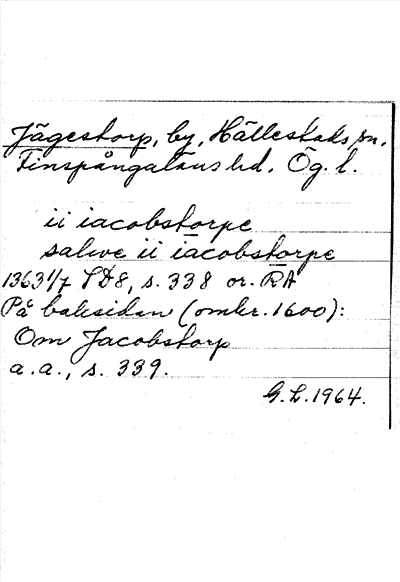 Jägestorp, by, Hällestads sn.
Finspångaläns hd. Ög. l.
ii iacobstorpe
salwe ii iacobstorpe
1363 1/7 SD8, s. 338 or. RA
På baksidan (omkr. 1600):
Om Jacobstorp
a.a., s. 339.
G.L. 1964.